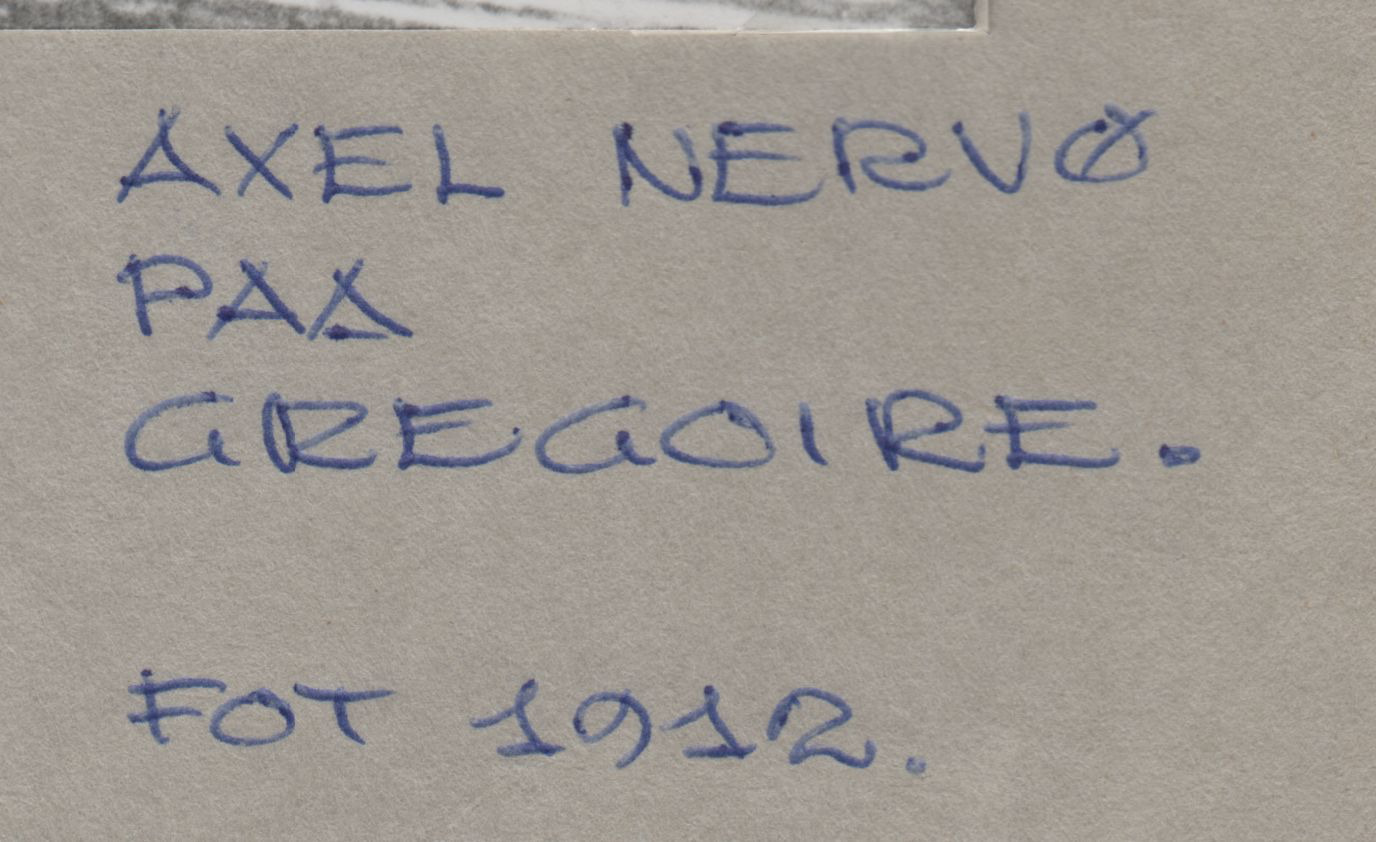 AXEL NERVØ
PAA
GREGOIRE.
FOT 1912.